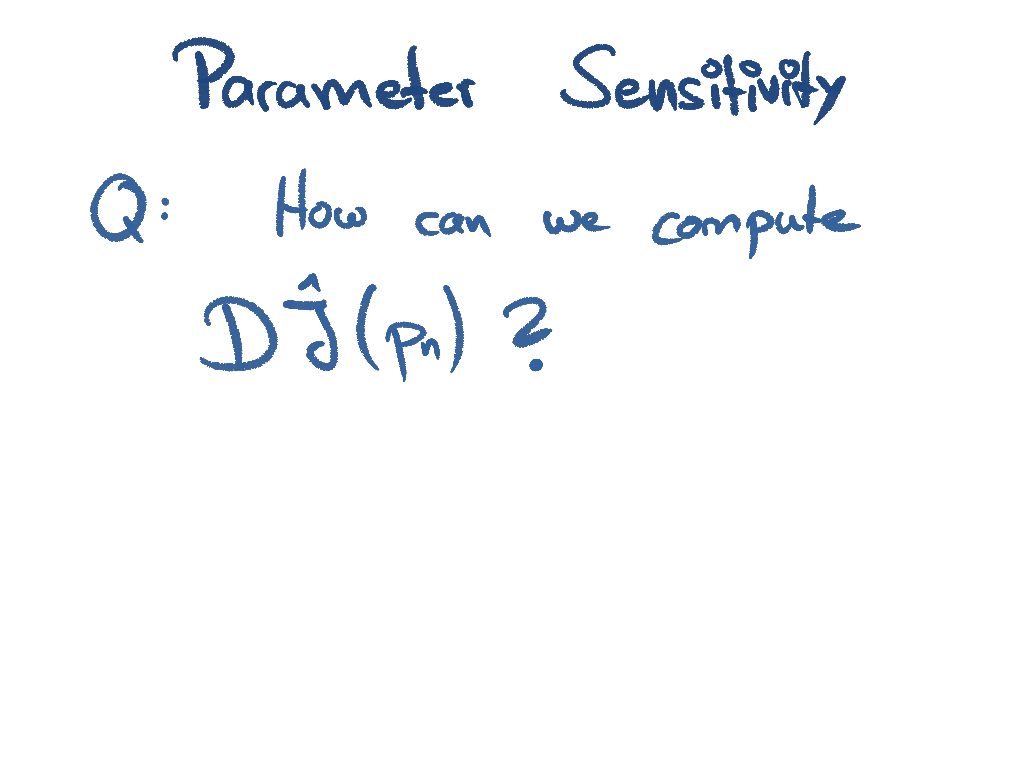 Parameter Sensitivity
Q: How can we compute
DĴ(pₙ)?